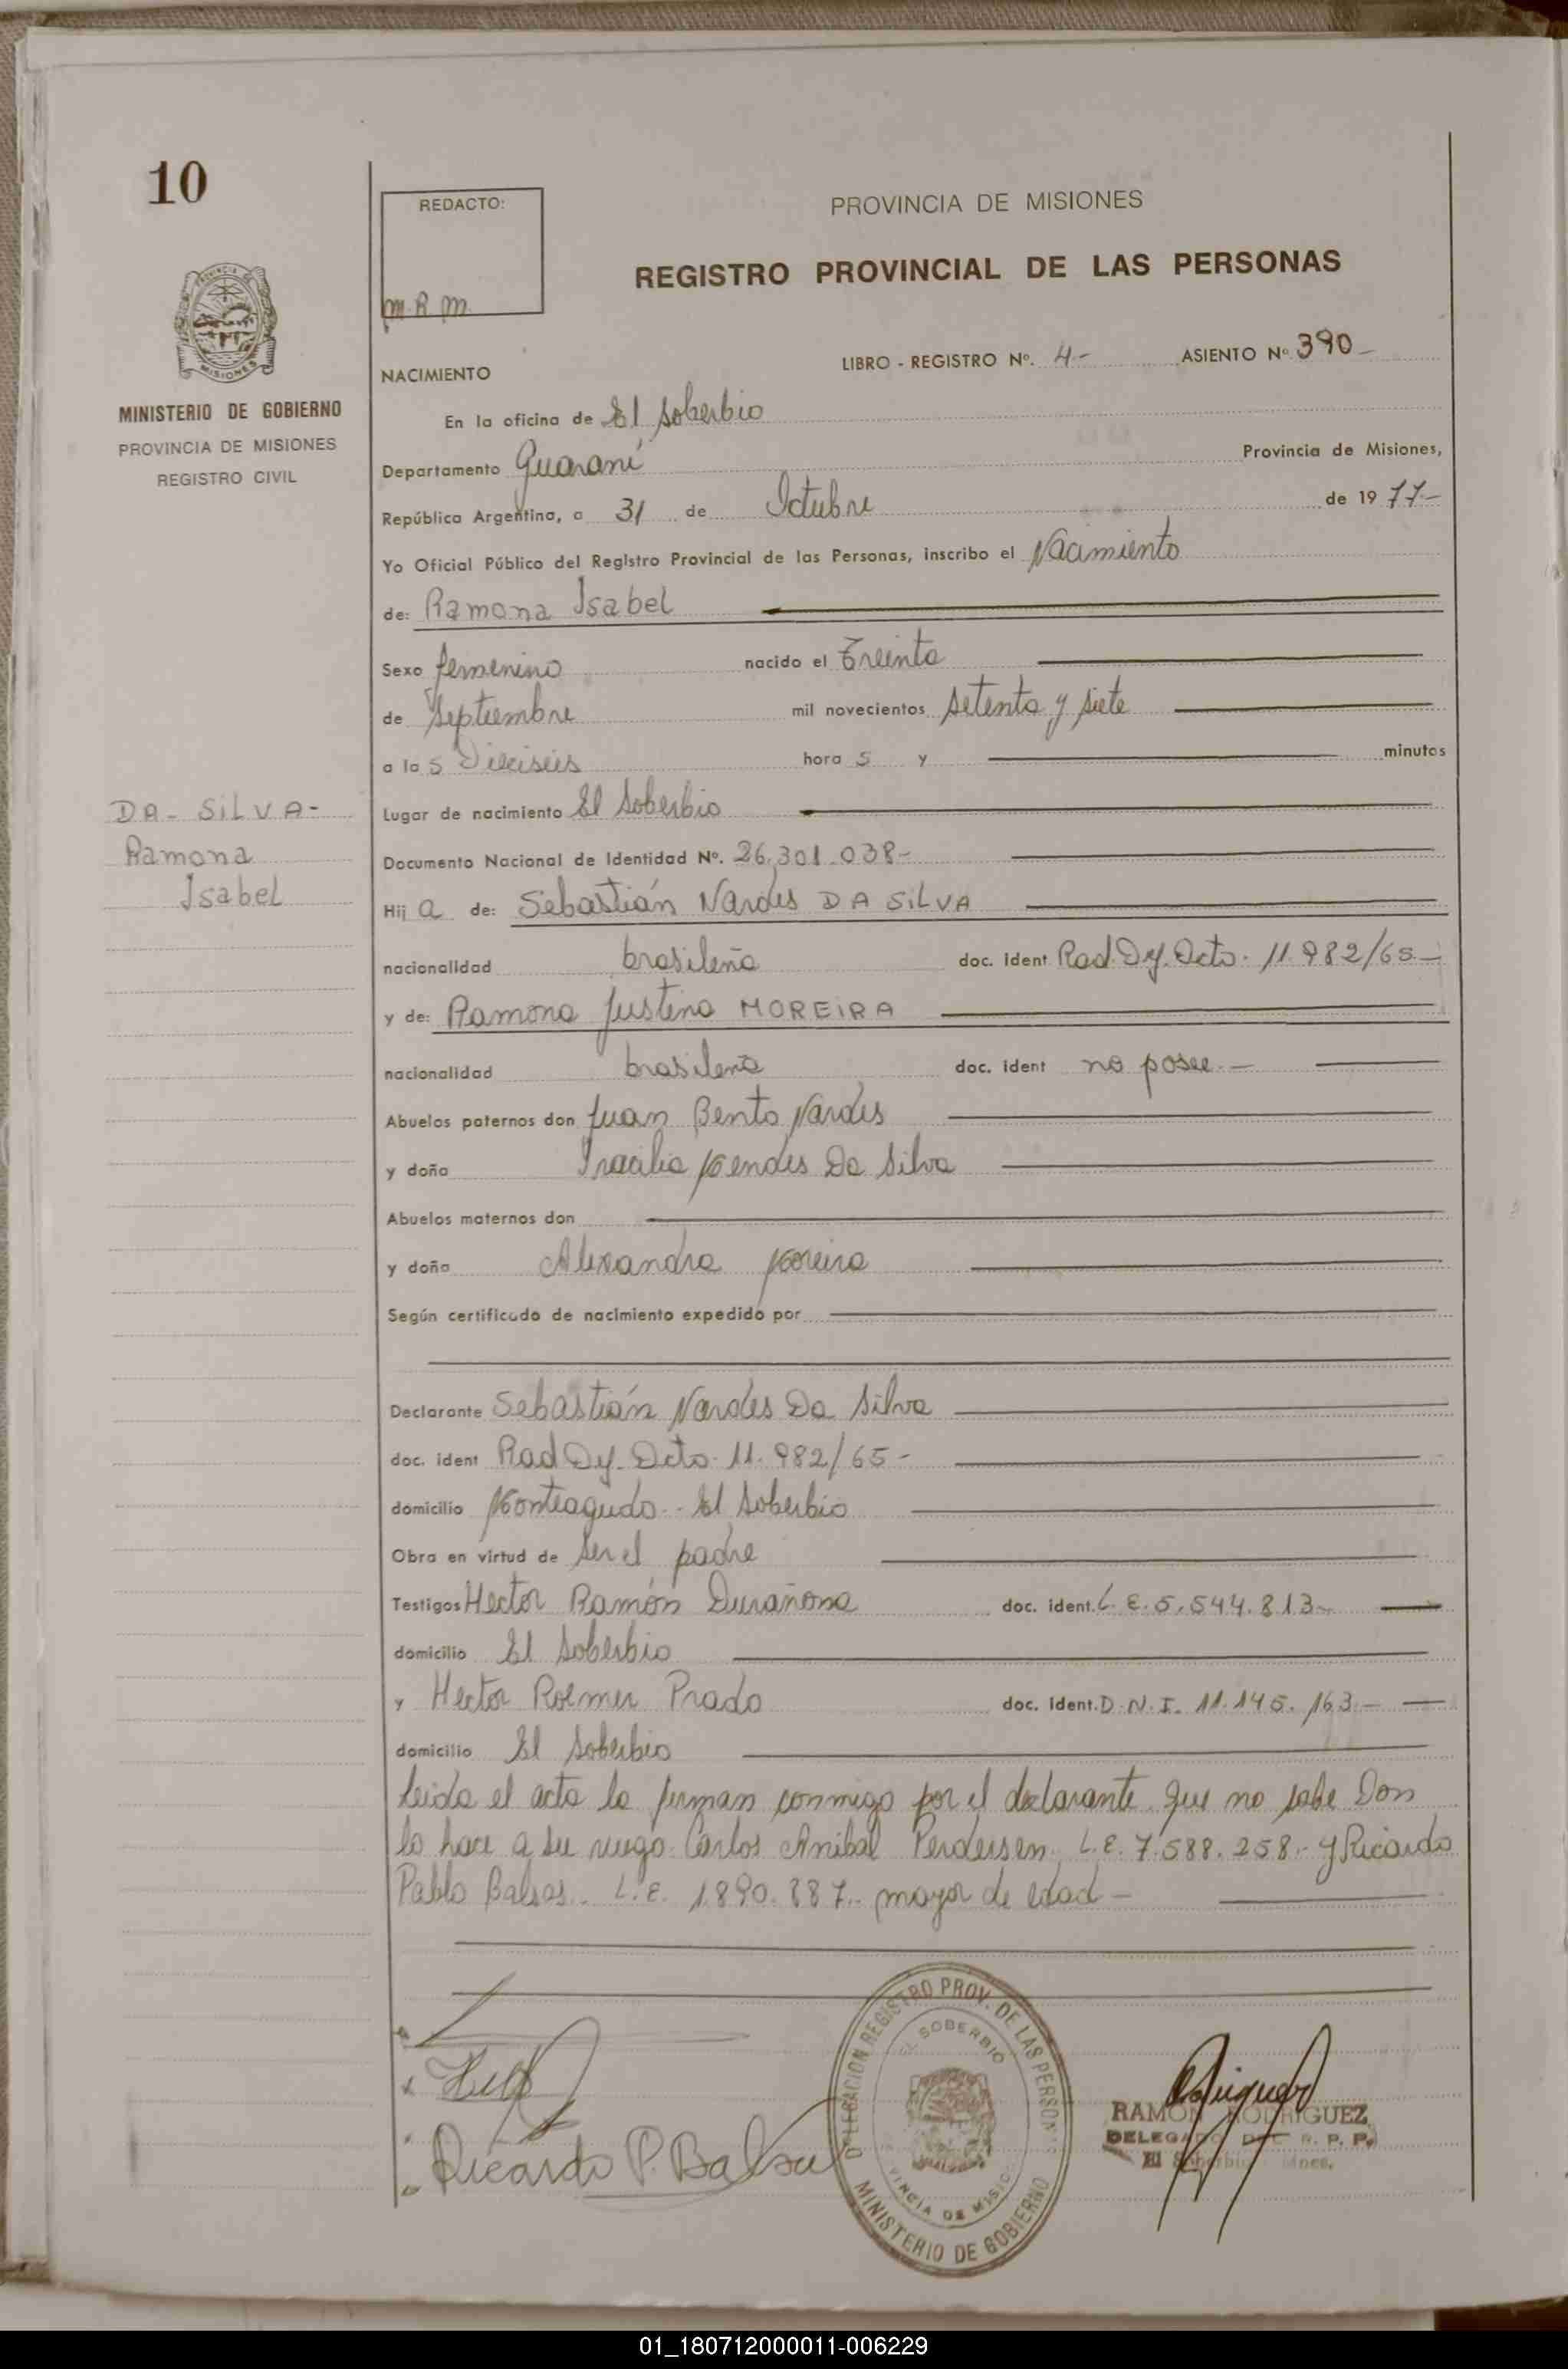 10
REDACTO:
M.R.M.
PROVINCIA DE MISIONES
REGISTRO PROVINCIAL DE LAS PERSONAS
PROVINCIA DE
MISIONES
MINISTERIO DE GOBIERNO
PROVINCIA DE MISIONES
REGISTRO CIVIL
LIBRO - REGISTRO Nº. 4.- ASIENTO Nº 390-
NACIMIENTO
En la oficina de El Soberbio
Departamento Guaraní Provincia de Misiones,
República Argentina, a 31 de Octubre de 1977.-
Yo Oficial Público del Registro Provincial de las Personas, inscribo el Nacimiento
de: Ramona Isabel
Sexo femenino nacido el Treinta
de Septiembre mil novecientos setenta y siete
a las Dieciseis horas y minutos
DA - SILVA -
Ramona
Isabel
Lugar de nacimiento El Soberbio
Documento Nacional de Identidad Nº. 26.301.038-
Hija de: Sebastián Nardes DA SILVA
nacionalidad brasileña doc. ident Rad. Dy. Dcto. 11.982/65.-
y de: Ramona Justina MOREIRA
nacionalidad brasileña doc. ident no posee.-
Abuelos paternos don Juan Bento Nardes
y doña Mendes Da Silva
Abuelos maternos don
y doña Alexandra Moreira
Según certificado de nacimiento expedido por
Declarante Sebastián Nardes Da Silva
doc. ident Rad Dy. Dcto. 11.982/65-
domicilio Monteagudo - El Soberbio
Obra en virtud de ser el padre
Testigos Hector Ramón Durañona doc. ident. L.E. 5.544.813-
domicilio El Soberbio
y Hector Roemer Prado doc. ident. D.N.I. 11.145.163.-
domicilio El Soberbio
leida el acta la firman conmigo por el declarante que no sabe Don
lo hace a su ruego Carlos Anibal Perdersen L.E. 7.588.258.- y Ricardo
Pablo Balsas. L.E. 1.890.887.- mayor de edad -
Ricardo P. Balsa
DELEGACION REGISTRO PROV. DE LAS PERSONAS
EL SOBERBIO
PROVINCIA DE MISIONES
MINISTERIO DE GOBIERNO
RAMON RODRIGUEZ
DELEGADO DEL R. P. P.
El Soberbio Mnes.
01_180712000011-006229